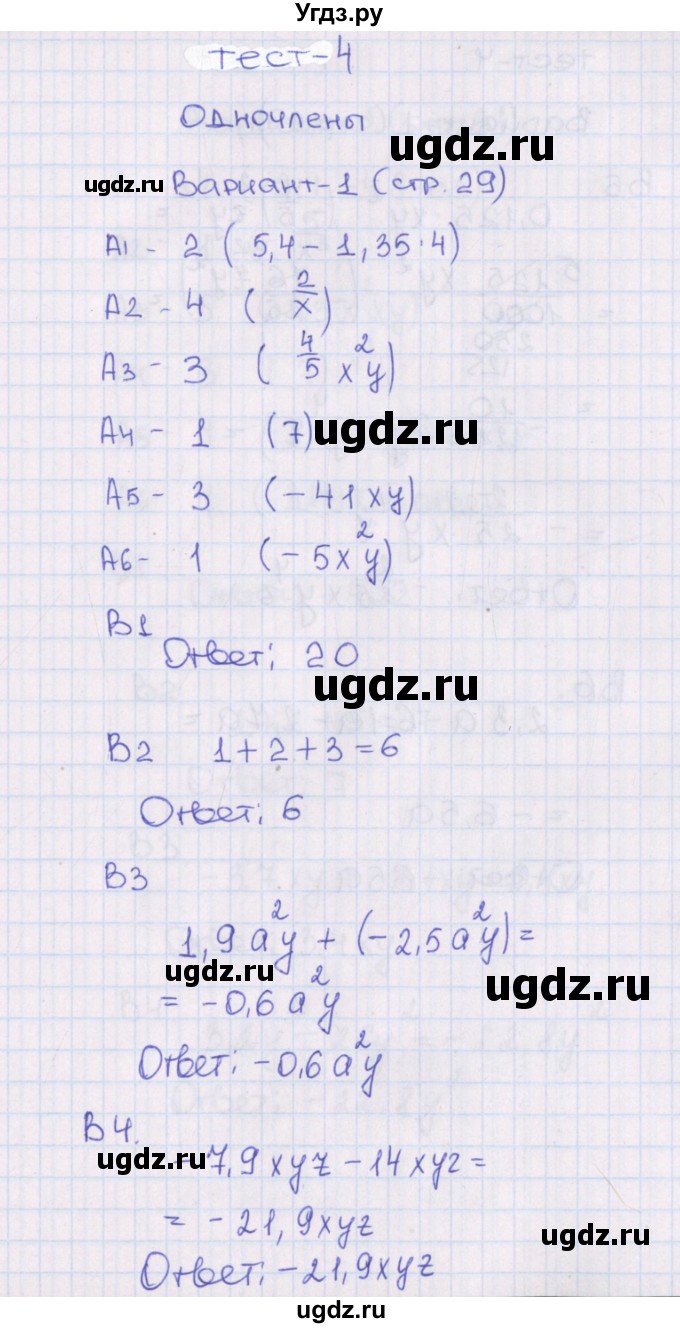 Угдз.ру
тест-4
Одночлены
ugdz.ru
ugdz.ru Вариант-1 (стр. 29)
А1 - 2 (5,4 - 1,35·4)
А2 - 4 (2/x)
А3 - 3 (4/5 x²y)
А4 - 1 (7) ugdz.ru
А5 - 3 (-41xy)
А6 - 1 (-5x²y)
В1
Ответ: 20
ugdz.ru
В2 1+2+3=6
Ответ: 6
ugdz.ru
В3
1,9a²y + (-2,5a²y) =
ugdz.ru
= -0,6a²y
ugdz.ru
Ответ: -0,6a²y
В4.
ugdz.ru -7,9xyz - 14xyz =
= -21,9xyz
ugdz.ru
Ответ: -21,9xyz
ugdz.ru